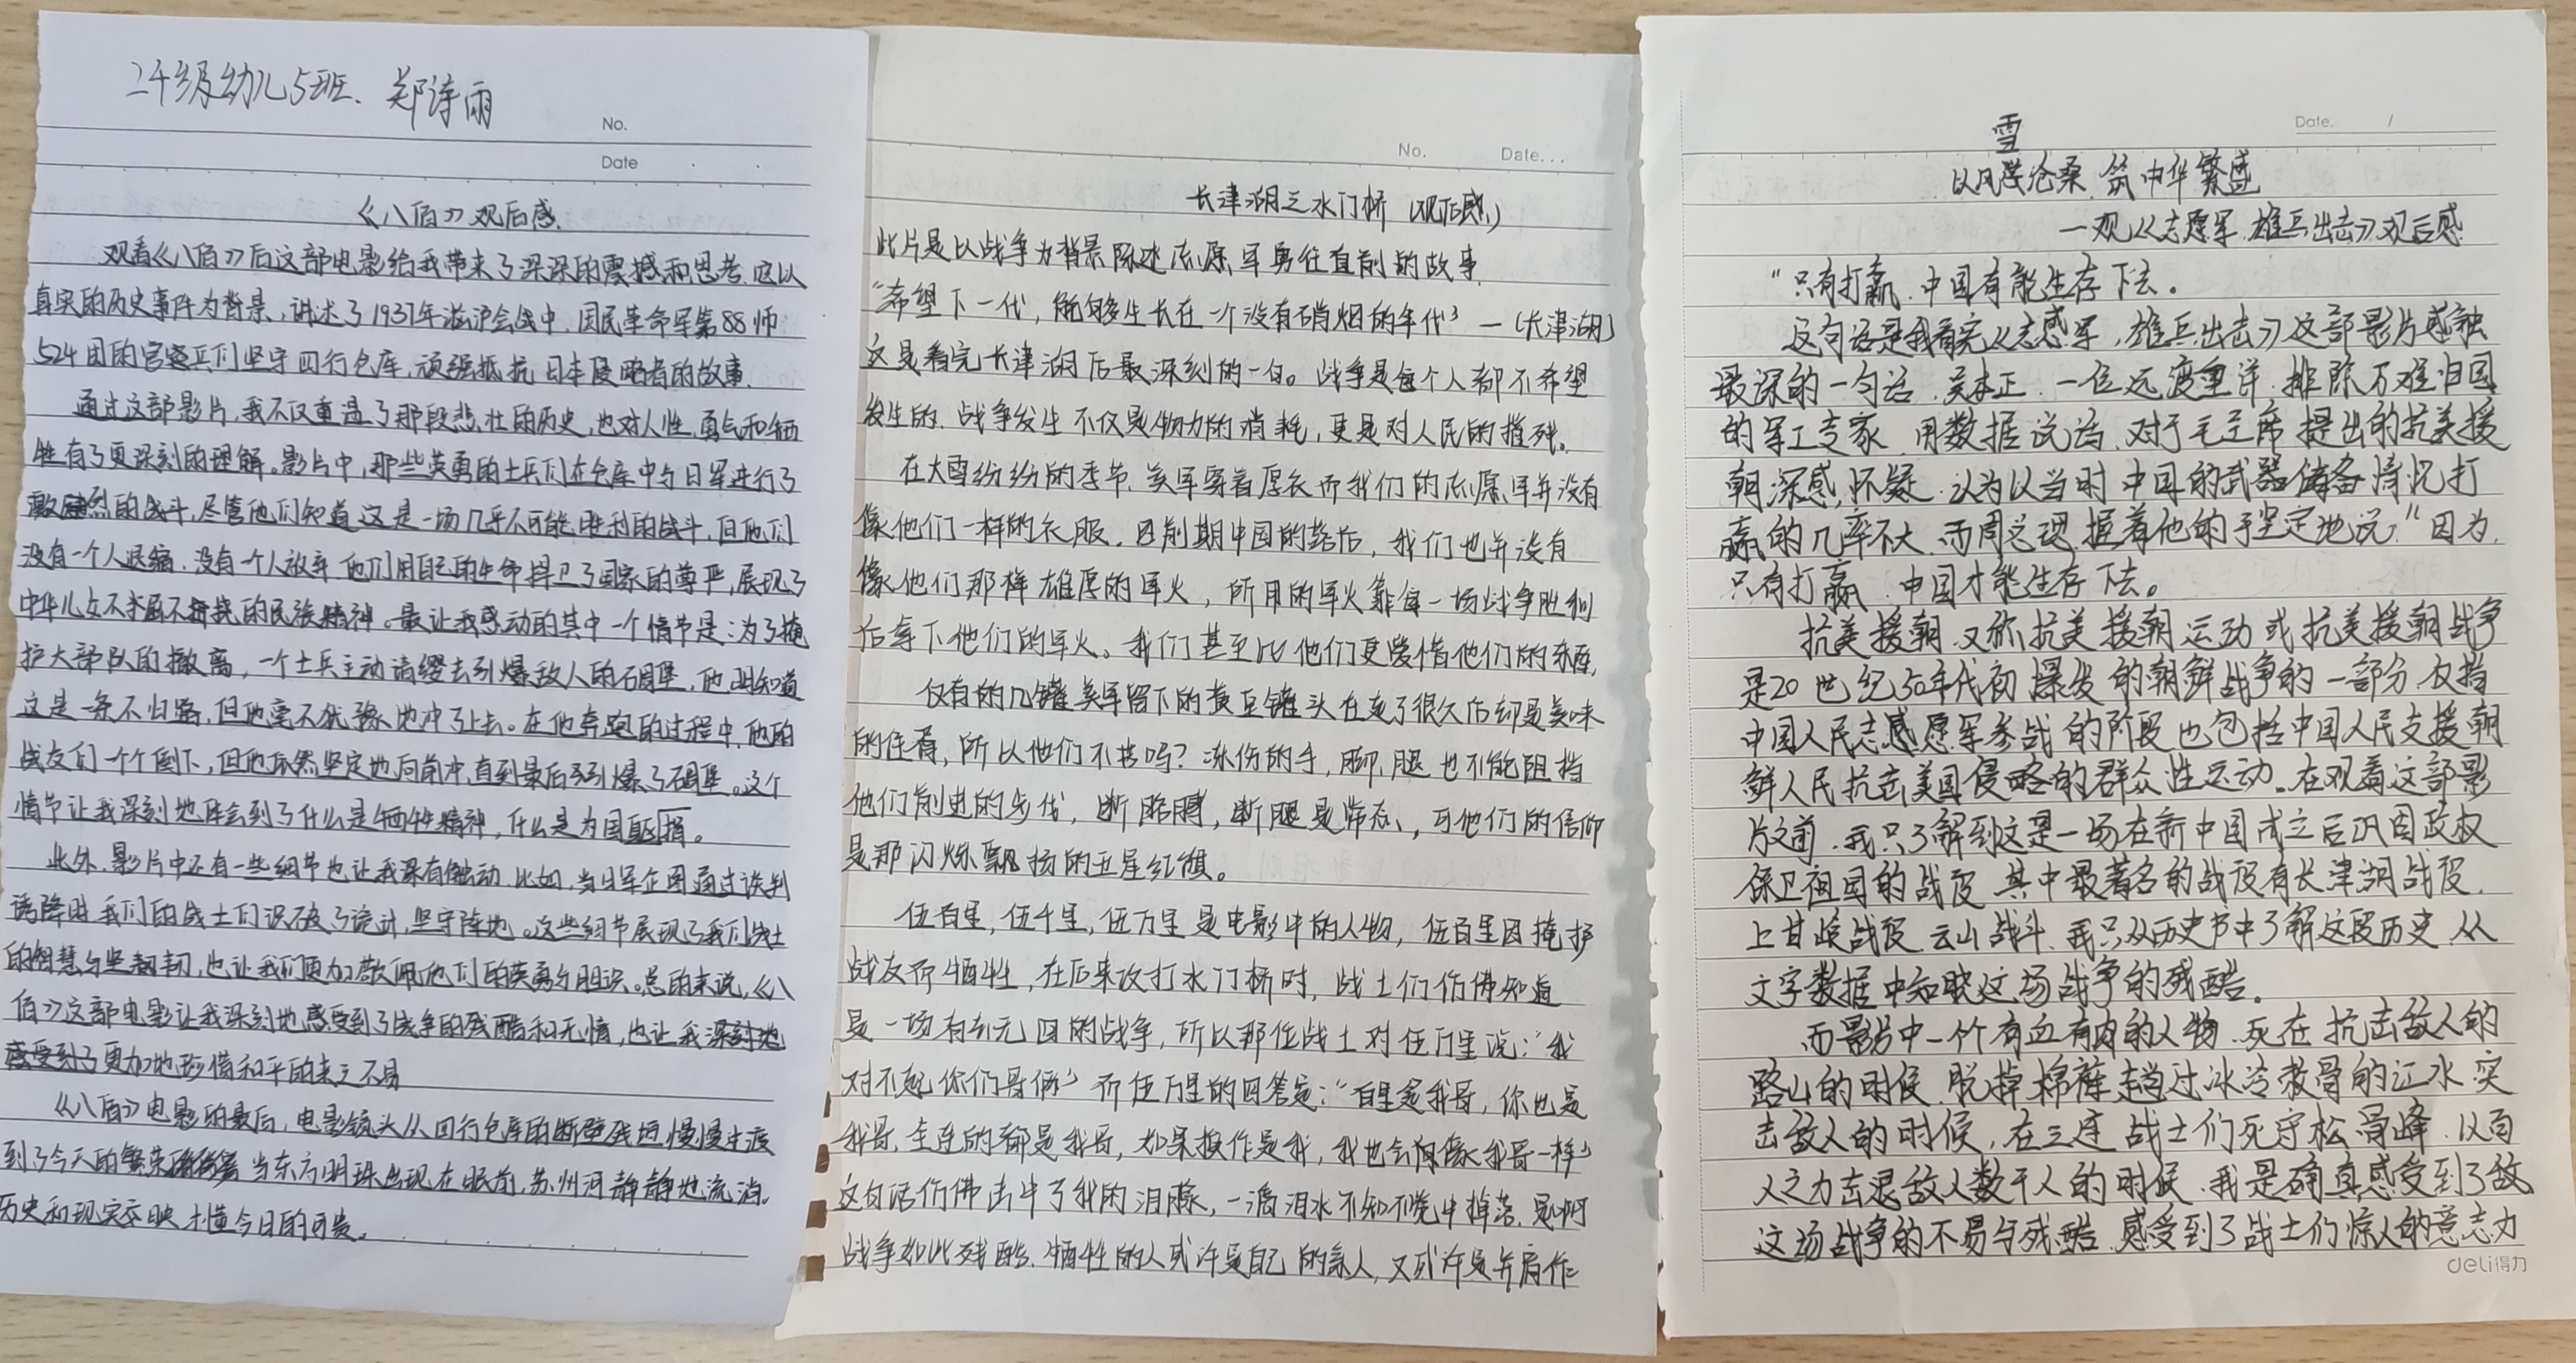 24级幼儿5班、郑诗雨
No.
Date
《八佰》观后感
观看《八佰》后这部电影给我带来了深深的震撼和思考,它以
真实的历史事件为背景,讲述了1937年淞沪会战中,国民革命军第88师
524团的官兵们坚守四行仓库,顽强抵抗日本侵略者的故事.
通过这部影片,我不仅重温了那段悲壮的历史,也对人性,勇气和牺
牲有了更深刻的理解。影片中,那些英勇的士兵们在仓库中与日军进行了
激烈的战斗,尽管他们知道这是一场几乎不可能胜利的战斗,但他们
没有一个人退缩,没有一个人放弃,他们用自己的生命捍卫了国家的尊严,展现了
中华儿女不屈不挠的民族精神。最让我感动的其中一个情节是:为了掩
护大部队的撤离,一个士兵主动请缨去引爆敌人的碉堡,他明知道
这是一条不归路,但他毫不犹豫地冲了上去。在他奔跑的过程中,他的
战友们一个个倒下,但他依然坚定地向前冲,直到最后引爆了碉堡。这个
情节让我深刻地体会到了什么是牺牲精神,什么是为国捐躯。
此外,影片中还有一些细节也让我深有触动,比如,当日军企图通过谈判
诱降时我们的战士们识破了诡计,坚守阵地。这些细节展现了我们战士
的智慧与坚韧,也让我们更加敬佩他们的英勇与胆识。总的来说,《八
佰》这部电影让我深刻地感受到了战争的残酷和无情,也让我深刻地
感受到了更加地珍惜和平的来之不易
《八佰》电影的最后,电影镜头从四行仓库的断壁残垣慢慢过渡
到了今天的繁荣 当东方明珠出现在眼前,苏州河静静地流淌.
历史和现实交映,才懂今日的可贵。
No. Date...
长津湖之水门桥(观后感)
此片是以战争为背景陈述志愿军勇往直前的故事.
“希望下一代,能够生长在一个没有硝烟的年代”—《长津湖》
这是看完长津湖后最深刻的一句。战争是每个人都不希望
发生的.战争发生不仅是物力的消耗,更是对人民的摧残。
在大雪纷纷的季节,美军穿着厚衣而我们的志愿军并没有
像他们一样的衣服.因前期中国的落后,我们也并没有
像他们那样雄厚的军火,所用的军火靠每一场战争胜利
后拿下他们的军火。我们甚至比他们更爱惜他们的东西,
仅有的几罐美军留下的黄豆罐头在走了很久后却是美味
的佳肴,所以他们不苦吗?冻伤的手,脚,腿也不能阻挡
他们前进的步伐,断胳膊,断腿是常态,可他们的信仰
是那闪烁飘扬的五星红旗。
伍百里,伍千里,伍万里是电影中的人物,伍百里因掩护
战友而牺牲,在后来攻打水门桥时,战士们仿佛知道
是一场有去无回的战争,所以那位战士对伍万里说:“我
对不起你们哥俩”而伍万里的回答是:“百里是我哥,你也是
我哥,全连的都是我哥,如果换作是我,我也会像我哥一样”
这句话仿佛击中了我的泪腺,一滴泪水不知不觉中掉落.是啊
战争如此残酷.牺牲的人或许是自己的亲人,又或许是并肩作
Date. /
雪
以风沧桑.筑中华繁盛
一观《志愿军.雄兵出击》观后感
“只有打赢.中国有能生存下去。
这句话是我看完《志愿军,雄兵出击》这部影片感触
最深的一句话.吴本正.一位远渡重洋.排除万难归国
的军工专家.用数据说话.对于毛主席提出的抗美援
朝深感怀疑.认为以当时中国的武器储备情况打
赢的几率不大.而周总理握着他的手坚定地说:“因为,
只有打赢.中国才能生存下去。
抗美援朝.又称抗美援朝运动或抗美援朝战争
是20世纪50年代初爆发的朝鲜战争的一部分.仅指
中国人民志愿军参战的阶段也包括中国人民支援朝
鲜人民抗击美国侵略的群众性运动。在观看这部影
片之前.我只了解到这是一场在新中国成立后巩固政权
保卫祖国的战役.其中最著名的战役有长津湖战役.
上甘岭战役.云山战斗.我只从历史书中了解这段历史.从
文字数据中知晓这场战争的残酷。
而影片中一个个有血有肉的人物.死在抗击敌人的
路上的时候.脱掉棉裤趟过冰冷救骨的江水突
击敌人的时候,在三连战士们死守松骨峰.以百
人之力击退敌人数千人的时候.我是确真感受到了敌
这场战争的不易与残酷.感受到了战士们惊人的意志力
deli得力